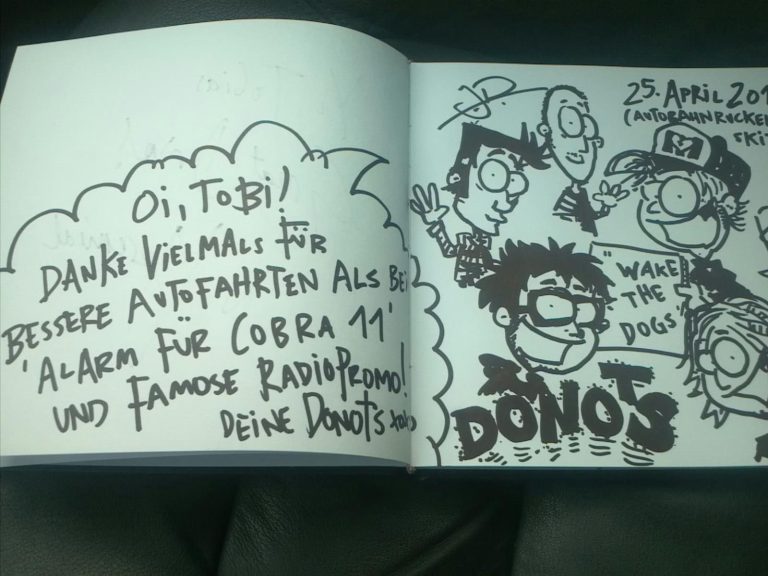 Oi, TOBi!
DANKE VIELMALS FÜR
BESSERE AUTOFAHRTEN ALS BEI
'ALARM FÜR COBRA 11'
UND FAMOSE RADIOPROMO!
DEINE DONOTS xoxo
25. APRIL 201
(AUTOBAHNRUCKEL
SKI
M
"WAKE
THE
DOGS"
DONOTS